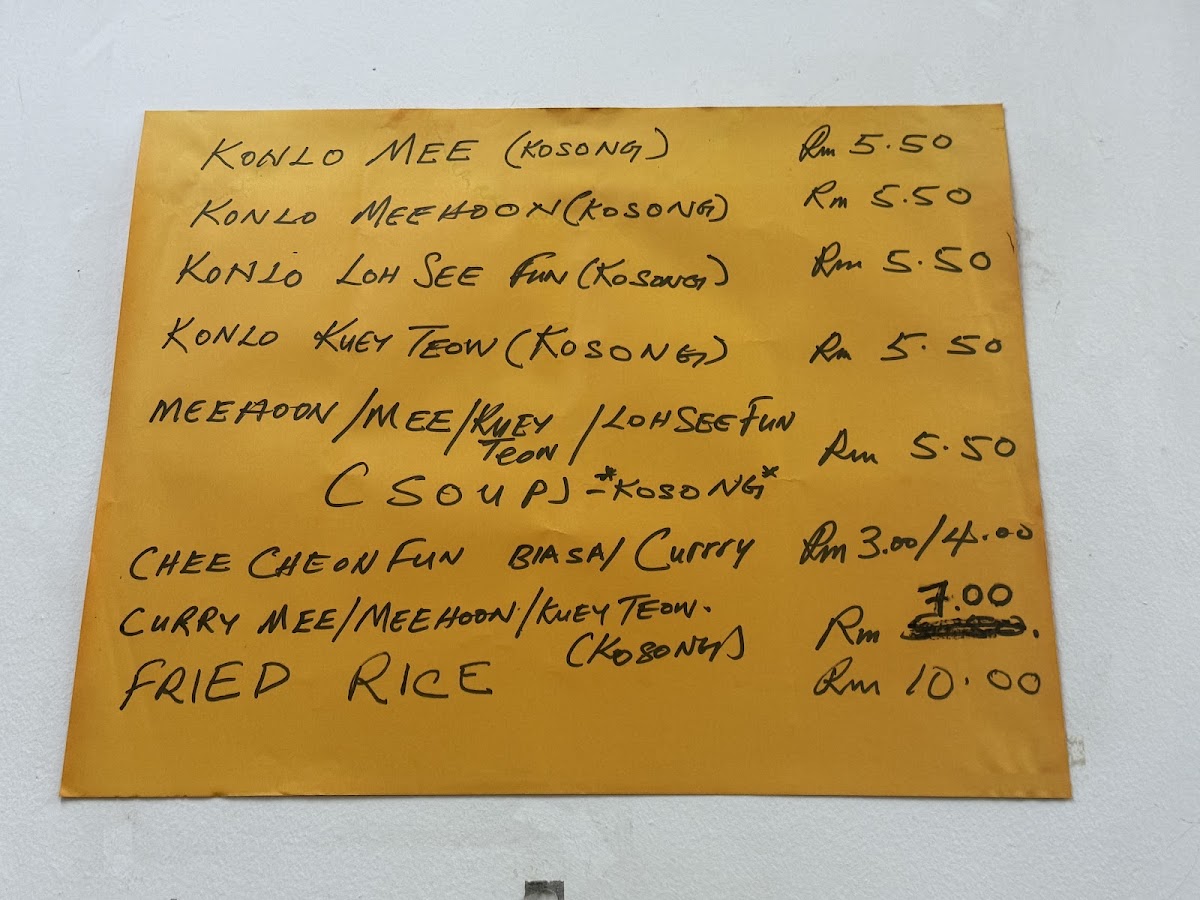 KONLO MEE (KOSONG) Rm 5.50
KONLO MEEHOON (KOSONG) Rm 5.50
KONLO LOH SEE FUN (KOSONG) Rm 5.50
KONLO KUEY TEOW (KOSONG) Rm 5.50
MEEHOON / MEE / KUEY TEOW / LOH SEE FUN Rm 5.50
(SOUP) - *KOSONG*
CHEE CHEON FUN BIASA / Currry Rm 3.00/4.00
CURRY MEE / MEEHOON / KUEY TEOW. Rm 7.00
(KOSONG)
FRIED RICE Rm 10.00